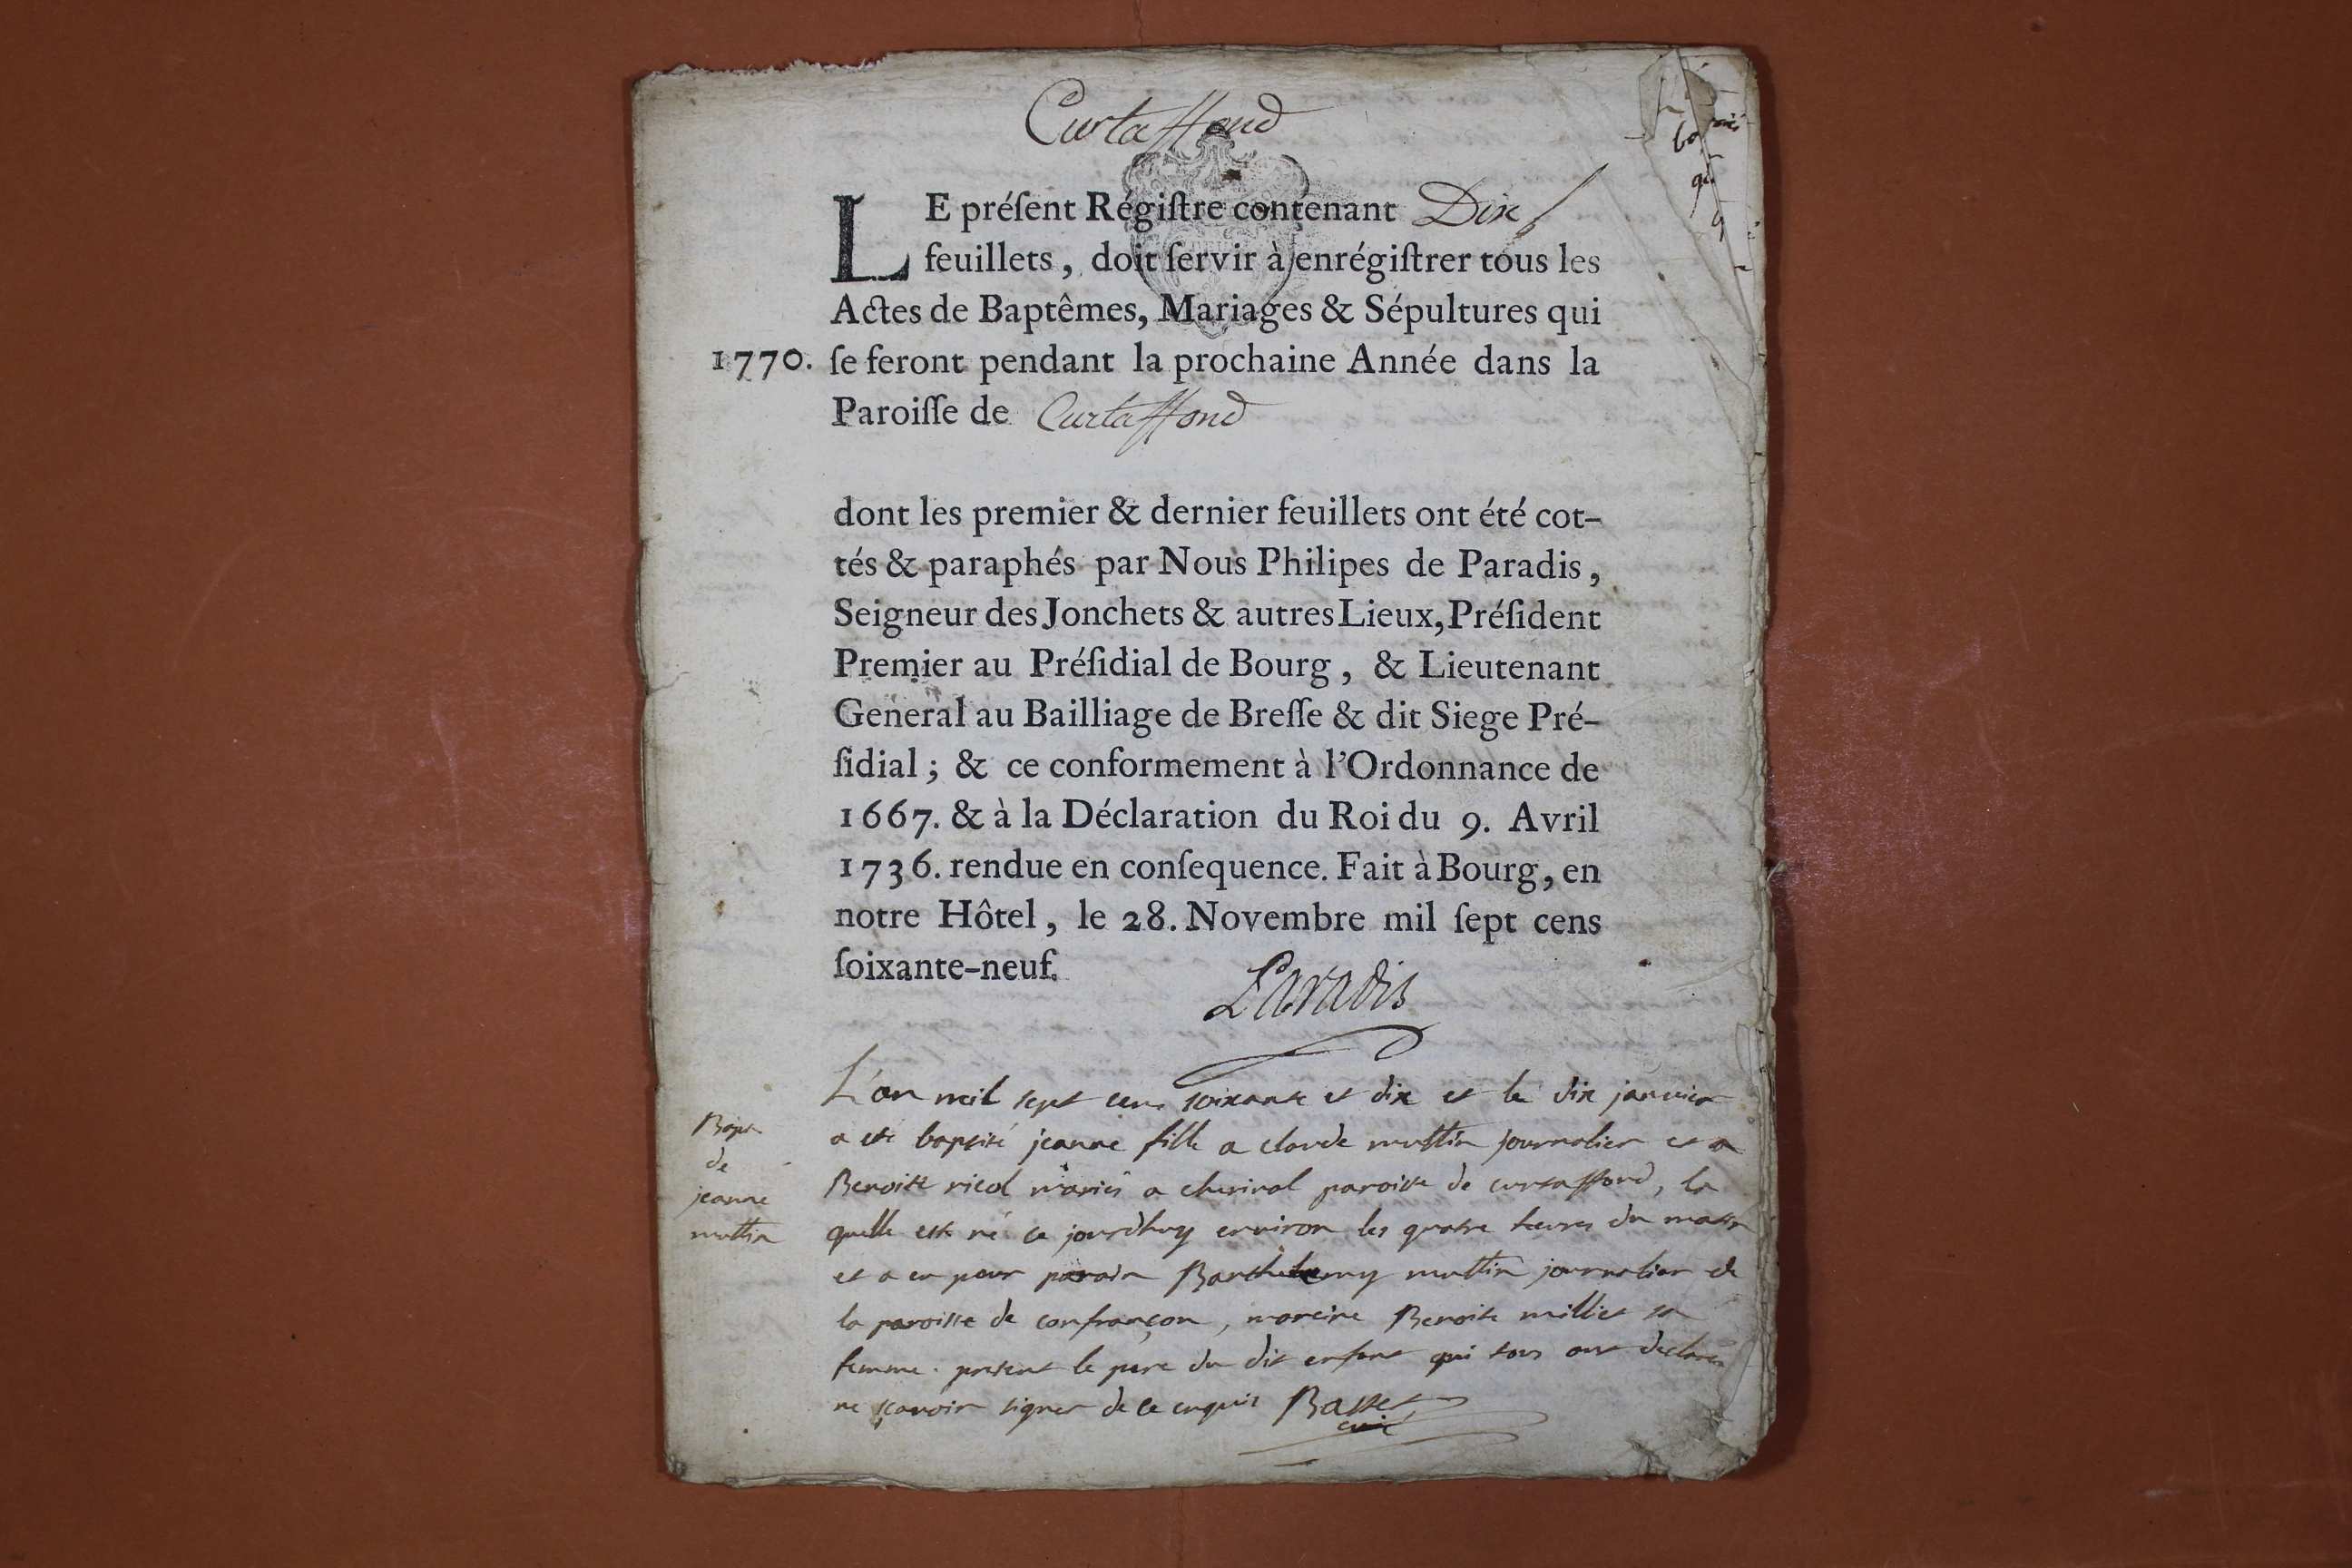 Curtaffond
LE préſent Régiſtre contenant Dix
feuillets, doit ſervir à enrégiſtrer tous les
Actes de Baptêmes, Mariages & Sépultures qui
1770. ſe feront pendant la prochaine Année dans la
Paroiſſe de Curtaffond
dont les premier & dernier feuillets ont été cot-
tés & paraphés par Nous Philipes de Paradis,
Seigneur des Jonchets & autres Lieux, Préſident
Premier au Préſidial de Bourg, & Lieutenant
General au Bailliage de Breſſe & dit Siege Pré-
ſidial; & ce conformement à l'Ordonnance de
1667. & à la Déclaration du Roi du 9. Avril
1736. rendue en conſequence. Fait à Bourg, en
notre Hôtel, le 28. Novembre mil ſept cens
ſoixante-neuf.
Paradis
Bapt
de
jeanne
muttin
L'an mil sept cens soixante et dix et le dix janvier
a eté baptisé jeanne fille a claude muttin journalier et a
Benoitte ricol mariés a cherinal paroisse de curtaffond, la
quelle est né ce jourdhuy environ les quatre heures du matin
et a eu pour parain Barthelemy muttin journalier de
la paroisse de confrançon, mareine Benoite milliet sa
femme. present le pere du dit enfant qui tous ont declaré
ne scavoir signer de ce enquis Basset
curé